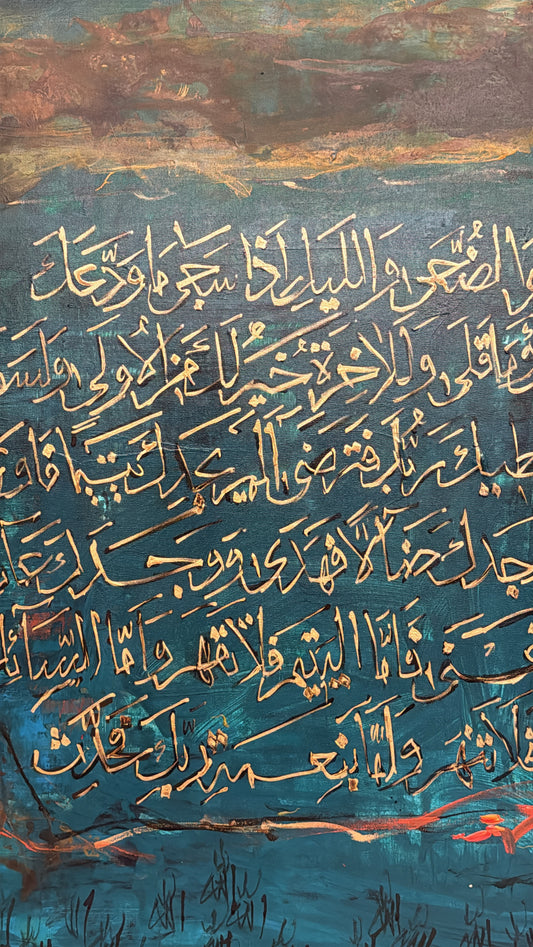 والضُّحَى واللَّيلِ إِذَا سَجَى مَا وَدَّعَكَ
وَمَا قَلَى وللآخِرَةُ خَيْرٌ لَكَ مِنَ الأُولَى ولَسَو
طيك رَبُّكَ فَتَرضَى أَلَم يجدك يَتِيمًا فَاوَى
جَدَكَ ضَآلًّا فَهَدَى وَوَجَدَكَ عَآ
غنَى فَأمَّا اليَتِيمَ فَلَا تَقْهَر وَأَمَّا السَّآئِل
فَلَا تَنهَر وَأَمَّا بِنِعمَةِ رَبِّكَ فَحَدِّث
الله الله